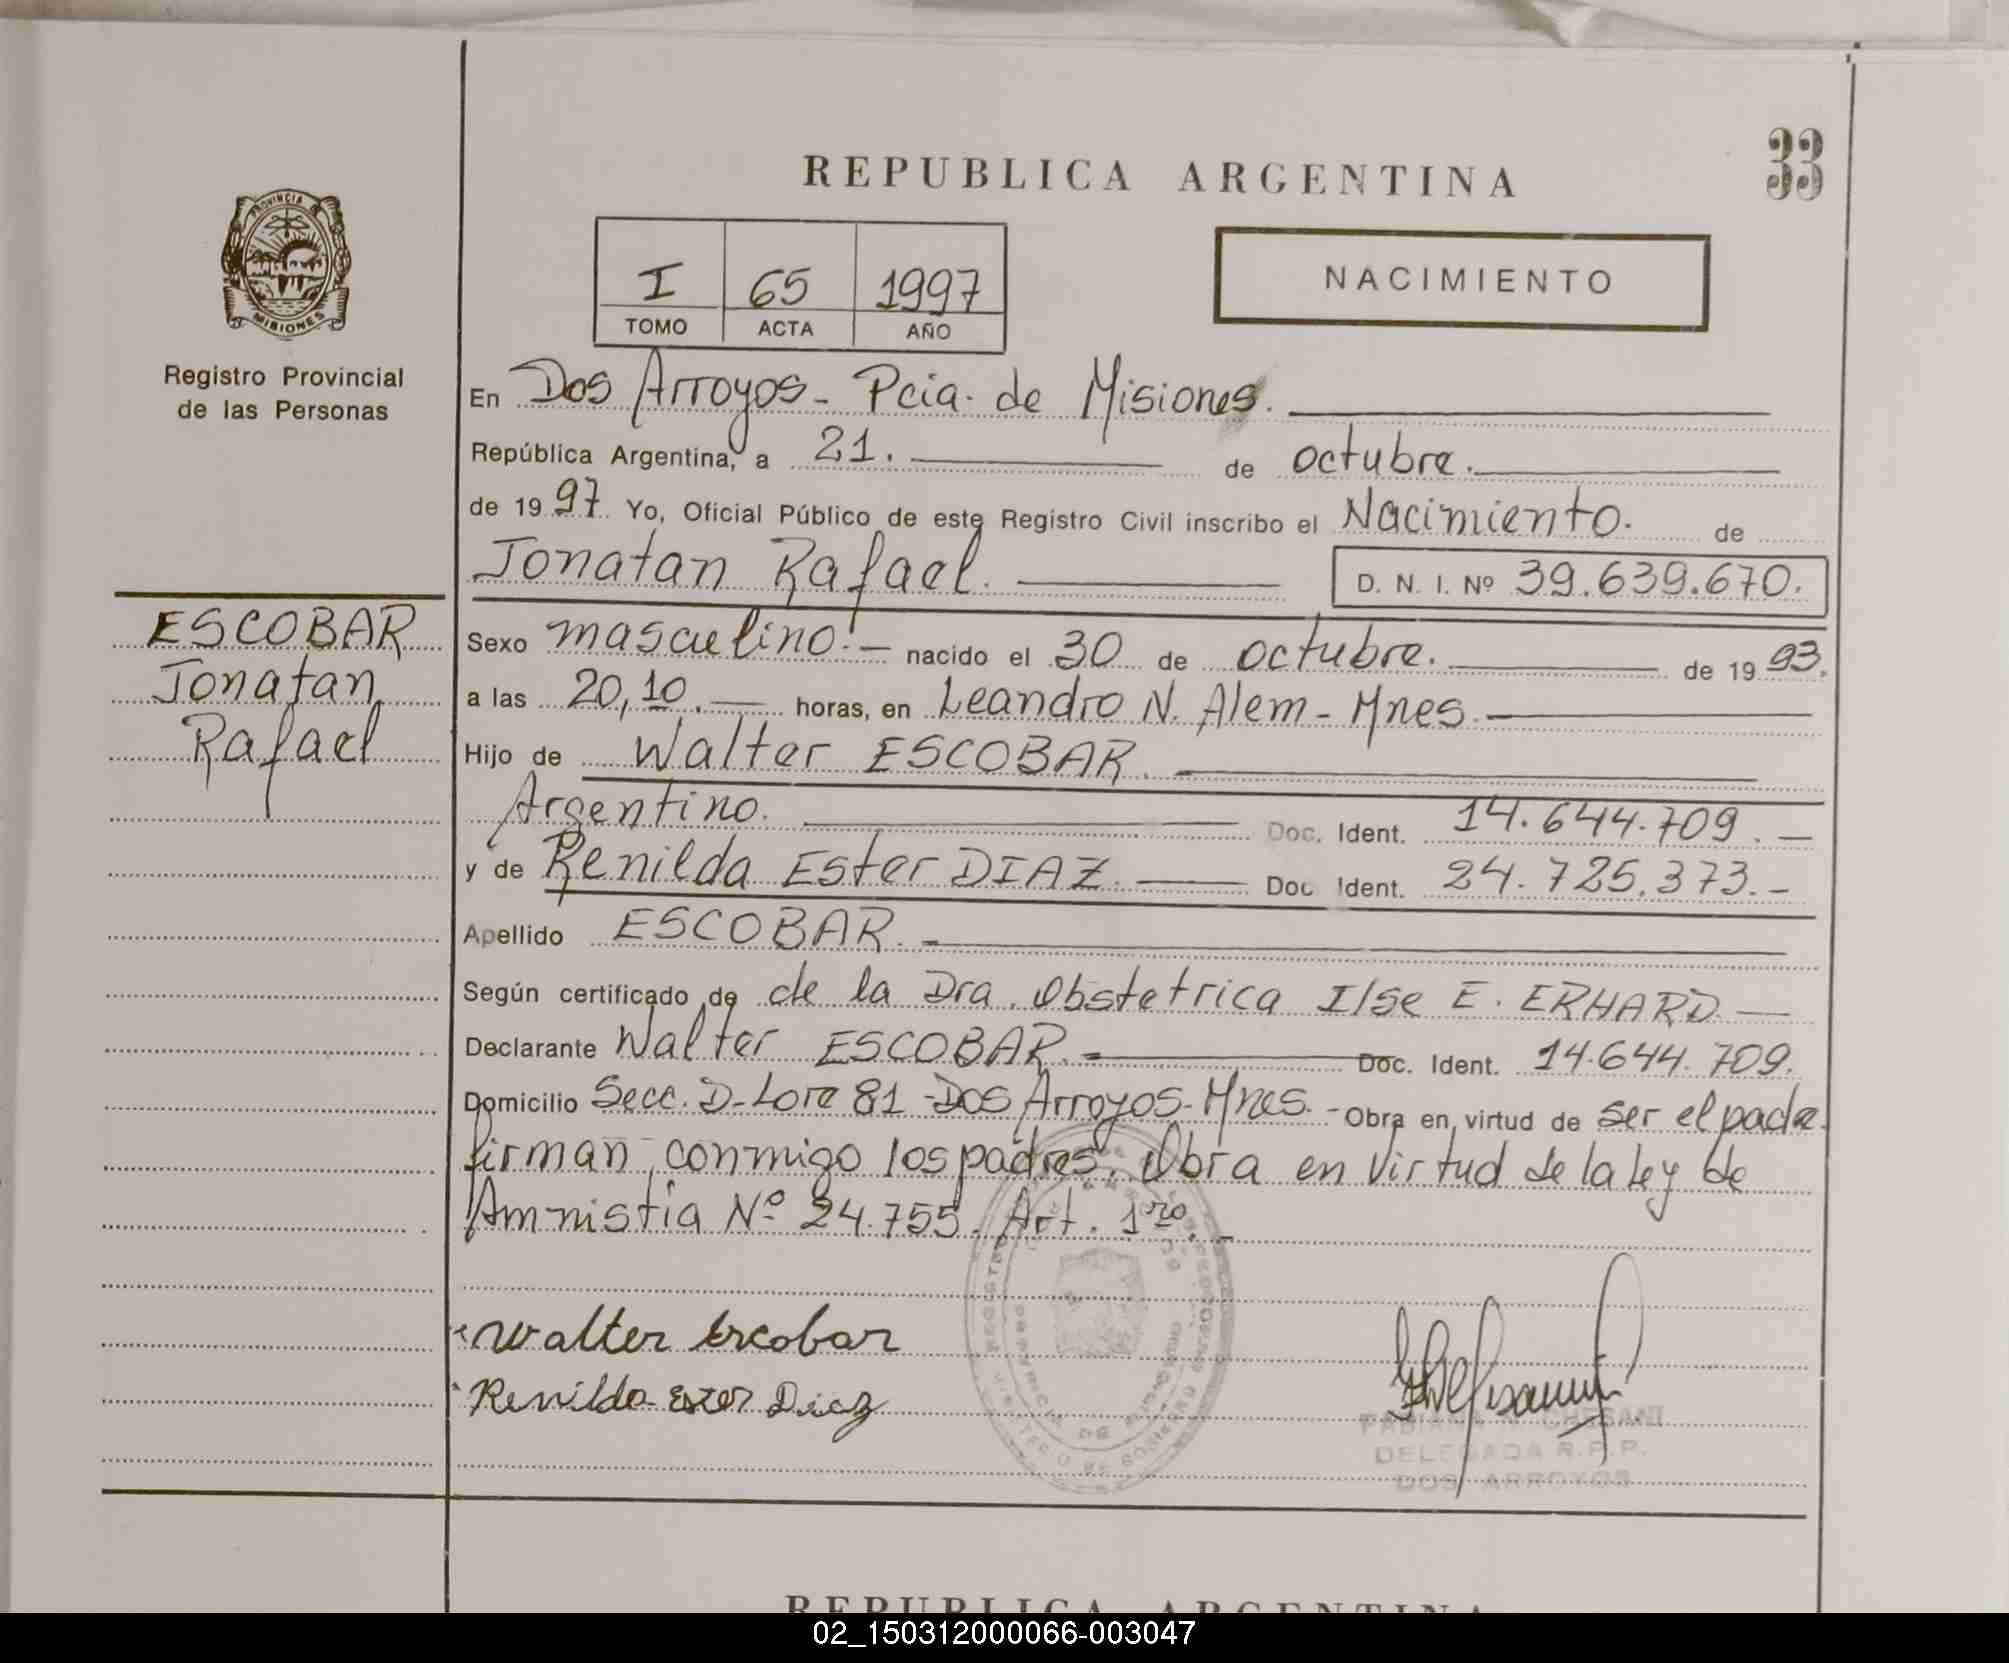 33
REPUBLICA ARGENTINA
PROVINCIA DE
MISIONES
Registro Provincial
de las Personas
I 65 1997
TOMO ACTA AÑO
NACIMIENTO
En Dos Arroyos - Pcia. de Misiones.
República Argentina, a 21. de octubre.
de 1997. Yo, Oficial Público de este Registro Civil inscribo el Nacimiento. de
Jonatan Rafael. D. N. I. Nº 39.639.670.
ESCOBAR
Jonatan
Rafael
Sexo masculino.- nacido el 30 de octubre. de 1993.
a las 20,10. horas, en Leandro N. Alem - Mnes.
Hijo de Walter ESCOBAR.
Argentino. Doc. Ident. 14.644.709.-
y de Renilda Ester DIAZ. Doc Ident. 24.725.373.-
Apellido ESCOBAR.
Según certificado de de la Dra. Obstetrica Ilse E. ERHARD
Declarante Walter ESCOBAR. Doc. Ident. 14.644.709.
Domicilio Secc. D-Lote 81 - Dos Arroyos - Mnes. - Obra en virtud de ser el padre.
firman conmigo los padres. Obra en virtud de la Ley de
Amnistia Nº 24.755. Art. 1ro.-
Walter Escobar
Renilda Ester Diaz
FABIANA N. CHESANI
DELEGADA R.P.P.
DOS ARROYOS
REPUBLICA ARGENTINA
02_150312000066-003047